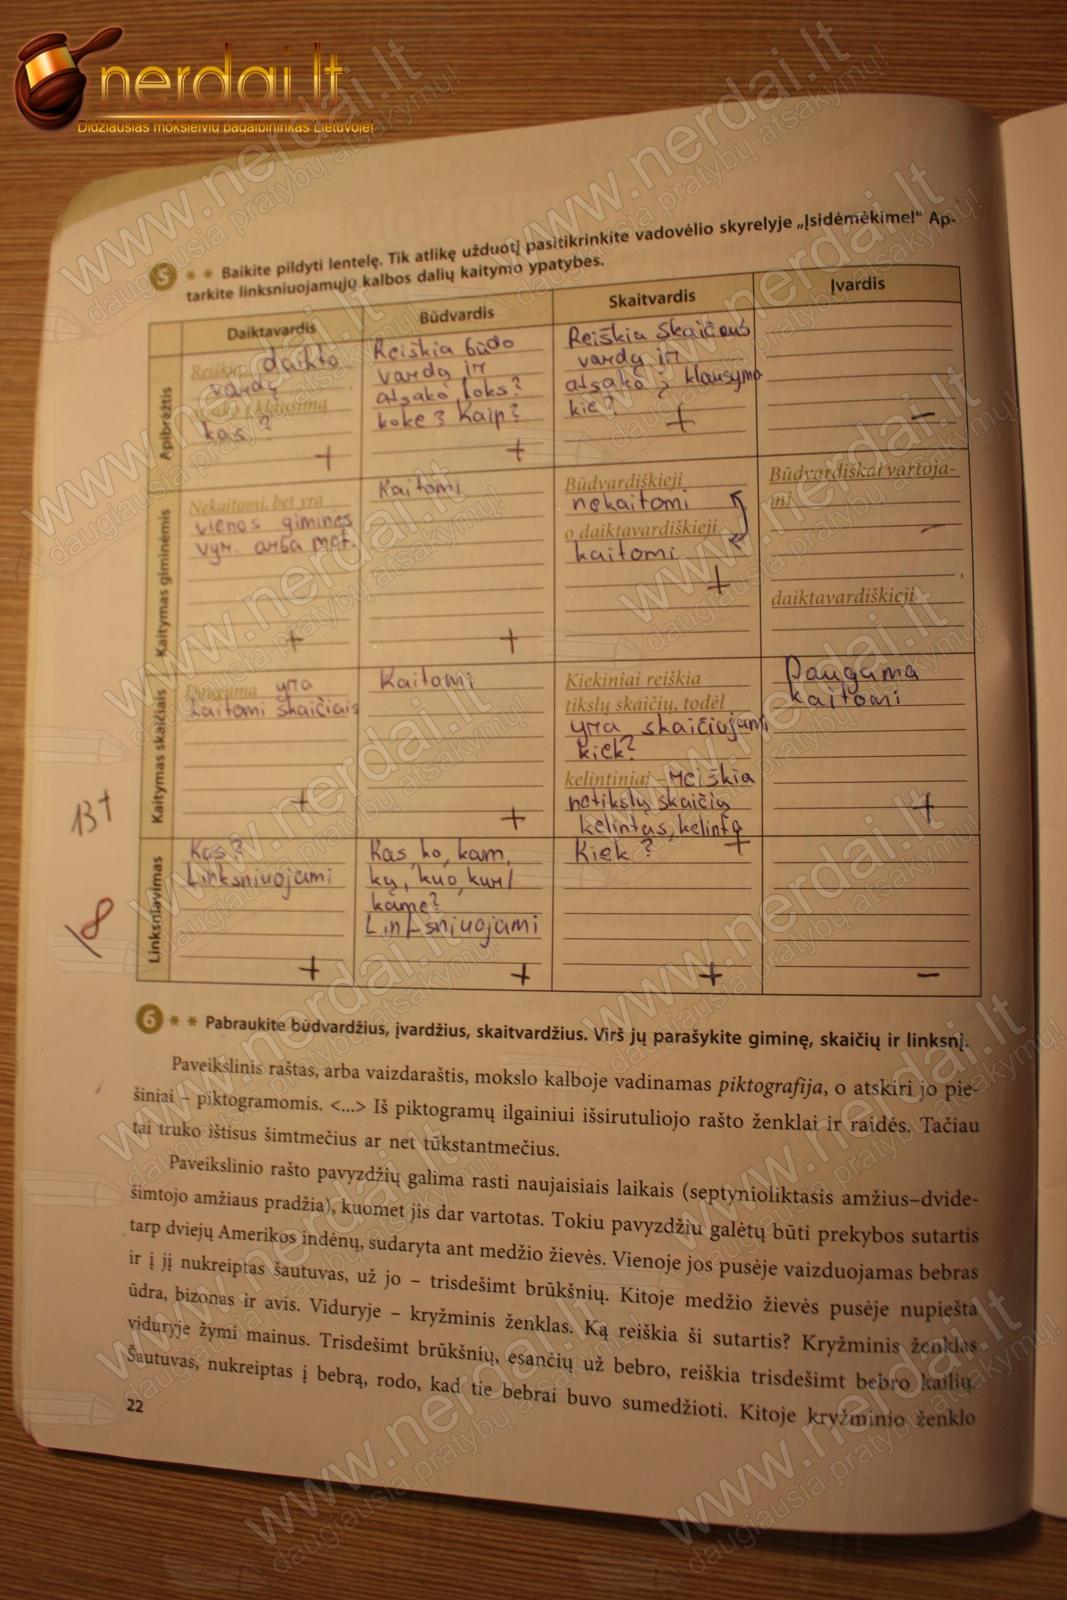 nerdai.lt
Didžiausias moksleivių pagalbininkas Lietuvoje!
5 * * Baikite pildyti lentelę. Tik atlikę užduotį pasitikrinkite vadovėlio skyrelyje „Įsidėmėkime!“ Ap-
tarkite linksniuojamųjų kalbos dalių kaitymo ypatybes.
Daiktavardis
Būdvardis
Skaitvardis
Įvardis
Apibrėžtis
Reiškia daikto
vardą
klausimą
kas?
+
Reiškia būdo
vardą ir
atsako loks?
koke? Kaip?
+
Reiškia skaičaus
vardą ir
atsako į klausymo
kie?
+
–
Kaitymas giminėmis
Nekaitomi, bet yra
vienos giminės
vyr. arba mot.
+
Kaitomi
+
Būdvardiškieji
nekaitomi
o daiktavardiškieji
kaitomi
+
Būdvardiškai vartoja-
mi
–
,
daiktavardiškieji
Kaitymas skaičiais
Dauguma yra
kaitomi skaičiais
+
Kaitomi
+
Kiekiniai reiškia
tikslų skaičių, todėl
yra skaičiuojami
kiek?
kelintiniai – reiškia
netikslų skaičių
kelintas, kelinta
+
Daugama
kaitomi
+
13+
18
Linksniavimas
Kas?
Linksniuojami
+
Kas, ko, kam,
ką, kuo, kur/
kame?
Linksniuojami
+
Kiek?
+
–
6 * * Pabraukite būdvardžius, įvardžius, skaitvardžius. Virš jų parašykite giminę, skaičių ir linksnį.
Paveikslinis raštas, arba vaizdaraštis, mokslo kalboje vadinamas piktografija, o atskiri jo pie-
šiniai – piktogramomis. <...> Iš piktogramų ilgainiui išsirutuliojo rašto ženklai ir raidės. Tačiau
tai truko ištisus šimtmečius ar net tūkstantmečius.
Paveikslinio rašto pavyzdžių galima rasti naujaisiais laikais (septynioliktasis amžius–dvide-
šimtojo amžiaus pradžia), kuomet jis dar vartotas. Tokiu pavyzdžiu galėtų būti prekybos sutartis
tarp dviejų Amerikos indėnų, sudaryta ant medžio žievės. Vienoje jos pusėje vaizduojamas bebras
ir į jį nukreiptas šautuvas, už jo – trisdešimt brūkšnių. Kitoje medžio žievės pusėje nupiešta
ūdra, bizonas ir avis. Viduryje – kryžminis ženklas. Ką reiškia ši sutartis? Kryžminis ženklas
viduryje žymi mainus. Trisdešimt brūkšnių, esančių už bebro, reiškia trisdešimt bebro kailių.
Šautuvas, nukreiptas į bebrą, rodo, kad tie bebrai buvo sumedžioti. Kitoje kryžminio ženklo
22
www.nerdai.lt
daugiausia pratybų atsakymų!